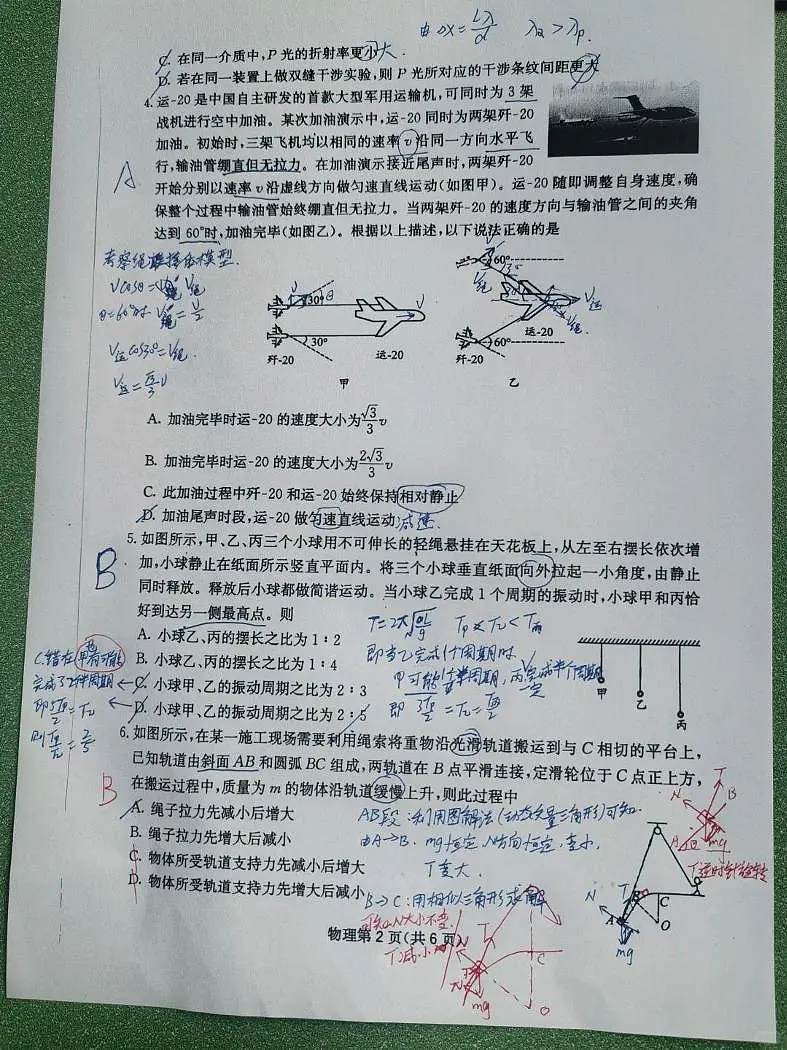 由 Δx = Lλ/d  λa > λp.
C. 在同一介质中,P 光的折射率更小 大.
D. 若在同一装置上做双缝干涉实验,则 P 光所对应的干涉条纹间距更大
4. 运-20 是中国自主研发的首款大型军用运输机,可同时为 3 架
战机进行空中加油。某次加油演示中,运-20 同时为两架歼-20
加油。初始时,三架飞机均以相同的速率 v 沿同一方向水平飞
行,输油管绷直但无拉力。在加油演示接近尾声时,两架歼-20
A
开始分别以速率 v 沿虚线方向做匀速直线运动(如图甲)。运-20 随即调整自身速度,确
保整个过程中输油管始终绷直但无拉力。当两架歼-20 的速度方向与输油管之间的夹角
达到 60°时,加油完毕(如图乙)。根据以上描述,以下说法正确的是
模型.
Vcosθ = V绳
θ=60°时 V绳 = V/2
V运cos30° = V绳.
V运 = √3/3 V
30° θ V
30°
歼-20 运-20
甲
V 60°
V绳
V运
V绳
运-20
60°
歼-20
乙
A. 加油完毕时运-20 的速度大小为√3/3 v
B. 加油完毕时运-20 的速度大小为2√3/3 v
C. 此加油过程中歼-20 和运-20 始终保持相对静止
D. 加油尾声时段,运-20 做匀速直线运动 减速.
5. 如图所示,甲、乙、丙三个小球用不可伸长的轻绳悬挂在天花板上,从左至右摆长依次增
B
加,小球静止在纸面所示竖直平面内。将三个小球垂直纸面向外拉起一小角度,由静止
同时释放。释放后小球都做简谐运动。当小球乙完成 1 个周期的振动时,小球甲和丙恰
好到达另一侧最高点。则
A. 小球乙、丙的摆长之比为 1∶2
B. 小球乙、丙的摆长之比为 1∶4
C. 小球甲、乙的振动周期之比为 2∶3
D. 小球甲、乙的振动周期之比为 2∶5
T=2π√(L/g) T甲<T乙<T丙
即当乙完成1个周期时
丙完成半个周期
即 3T甲/2 = T乙 = T丙/2
C.错在 甲有可能
完成了2个半周期
即 5T甲/2 = T乙
则 T甲/T乙 = 2/5
甲 乙 丙
6. 如图所示,在某一施工现场需要利用绳索将重物沿光滑轨道搬运到与 C 相切的平台上,
已知轨道由斜面 AB 和圆弧 BC 组成,两轨道在 B 点平滑连接,定滑轮位于 C 点正上方,
B
在搬运过程中,质量为 m 的物体沿轨道缓慢上升,则此过程中
A. 绳子拉力先减小后增大
B. 绳子拉力先增大后减小
C. 物体所受轨道支持力先减小后增大
D. 物体所受轨道支持力先增大后减小
AB段:利用图解法(动态矢量三角形)可知.
由A→B. mg恒定,N方向恒定,变小,
T变大.
B→C:用相似三角形求解
可知N大小不变.
T减小
N T B A mg
T逆时针旋转
N T A B C O mg
N T C O mg
物理第 2 页(共 6 页)